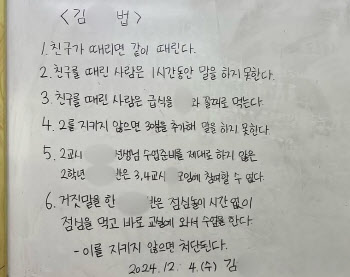 <김 법>
1. 친구가 때리면 같이 때린다.
2. 친구를 때린 사람은 1시간동안 말을 하지 못한다.
3. 친구를 때린 사람은 급식을 과 꼴찌로 먹는다.
4. 2를 지키지 않으면 3명을 추가해 말을 하지 못한다
5. 2교시 선생님 수업준비를 제대로 하지 않은
2학년 반은 3,4교시 모임에 참여할 수 없다.
6. 거짓말을 한 반은 점심놀이 시간 없이
점심을 먹고 바로 교실에 와서 수업을 한다.
- 이를 지키지 않으면 처단된다.
2024. 12. 4. (수) 김